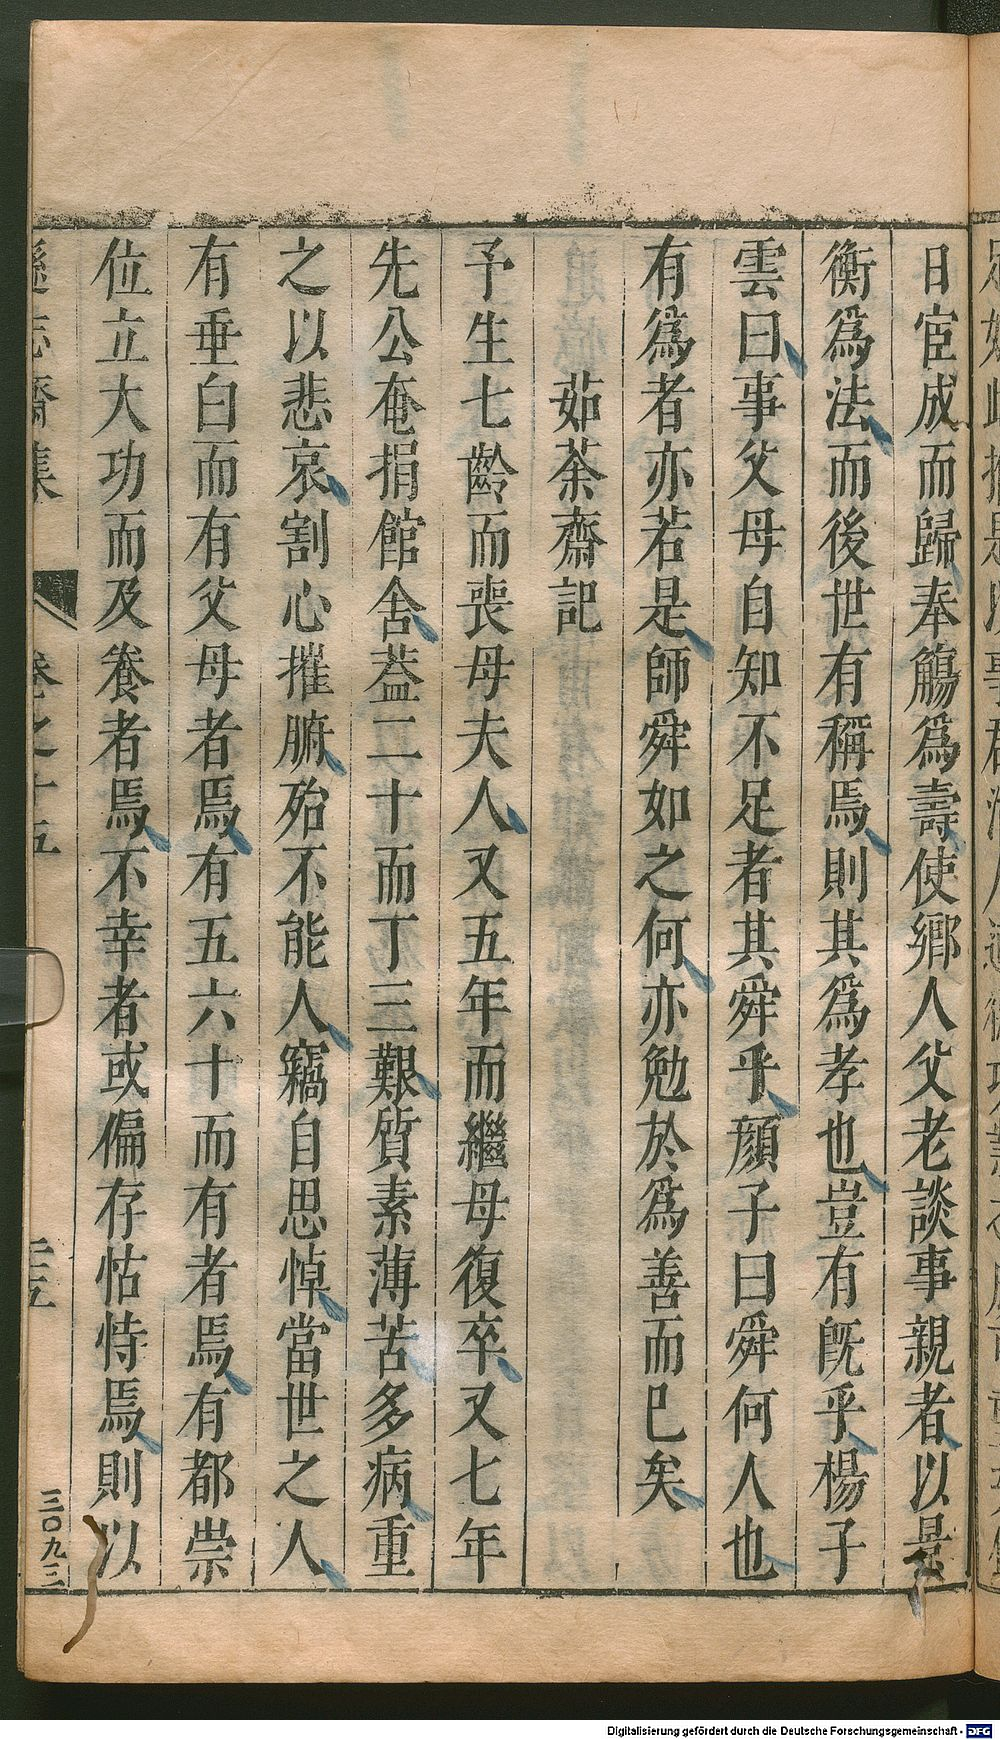 日宦成而歸奉觴爲壽使鄉人父老談事親者以景
衡爲法而後世有稱焉則其爲孝也豈有旣乎楊子
雲曰事父母自知不足者其舜乎顔子曰舜何人也
有爲者亦若是師舜如之何亦勉於爲善而已矣
茹荼齋記
予生七齡而喪母夫人又五年而繼母復卒又七年
先公奄捐館舍葢二十而丁三艱質素薄苦多病重
之以悲哀割心摧腑殆不能人竊自思悼當世之人
有垂白而有父母者焉有五六十而有者焉有都崇
位立大功而及養者焉不幸者或偏存怙恃焉則以
遜志齋集 卷之十五 三五
三〇九三
Digitalisierung gefördert durch die Deutsche Forschungsgemeinschaft - DFG